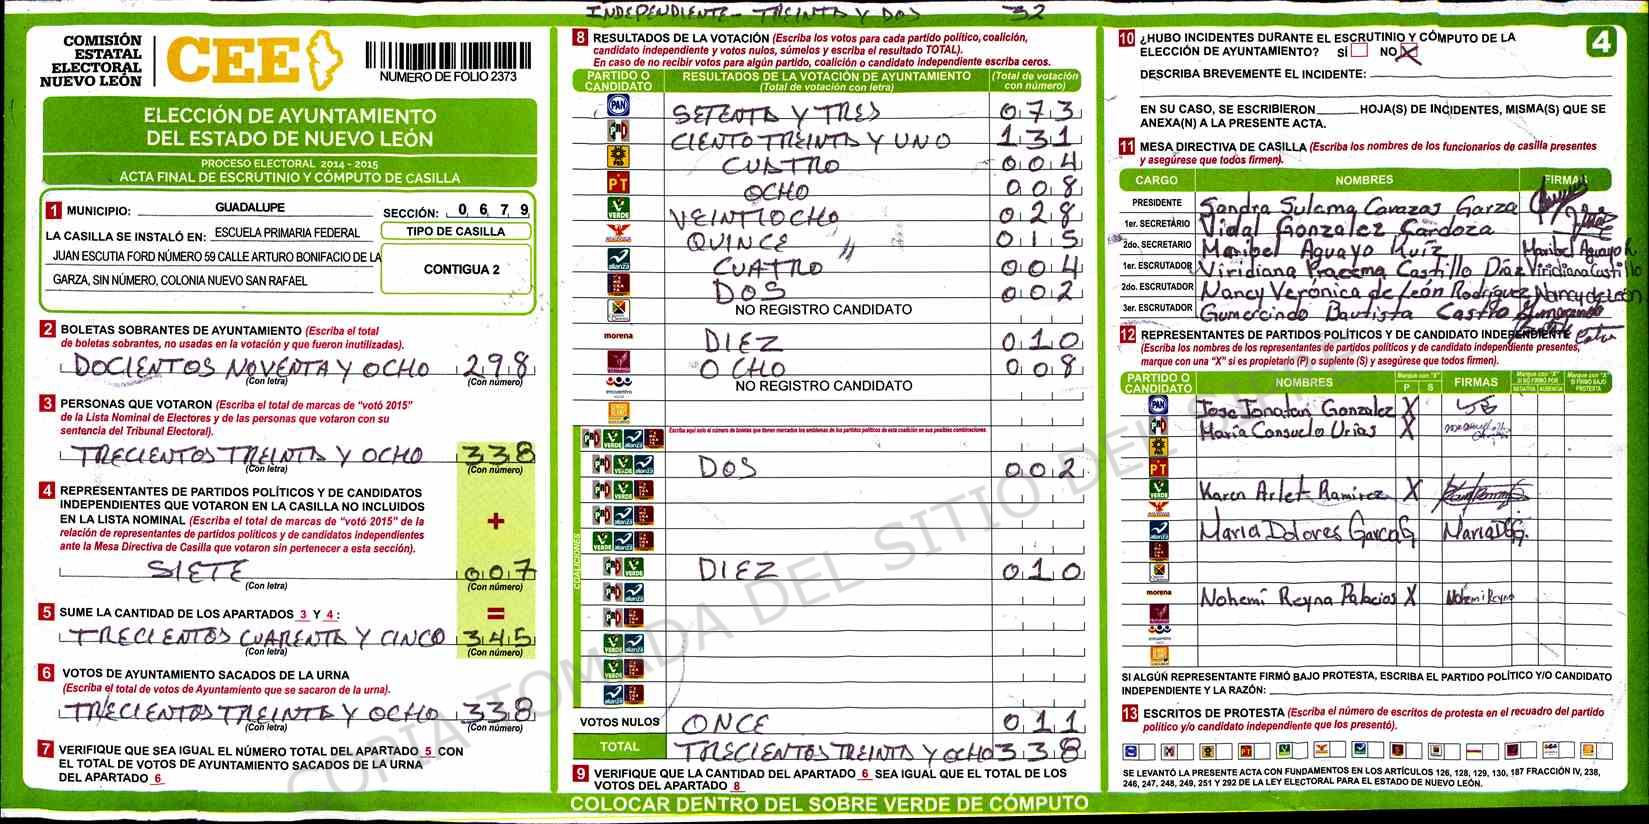 INDEPENDIENTE - TREINTA Y DOS 32
COMISIÓN
ESTATAL
ELECTORAL
NUEVO LEÓN
CEE
NUMERO DE FOLIO 2373
ELECCIÓN DE AYUNTAMIENTO
DEL ESTADO DE NUEVO LEÓN
PROCESO ELECTORAL 2014 - 2015
ACTA FINAL DE ESCRUTINIO Y CÓMPUTO DE CASILLA
1 MUNICIPIO: GUADALUPE SECCIÓN: 0 6 7 9
LA CASILLA SE INSTALÓ EN: ESCUELA PRIMARIA FEDERAL
JUAN ESCUTIA FORD NÚMERO 59 CALLE ARTURO BONIFACIO DE LA
GARZA, SIN NÚMERO, COLONIA NUEVO SAN RAFAEL
TIPO DE CASILLA
CONTIGUA 2
2 BOLETAS SOBRANTES DE AYUNTAMIENTO (Escriba el total
de boletas sobrantes, no usadas en la votación y que fueron inutilizadas).
DOCIENTOS NOVENTA Y OCHO 298
(Con letra) (Con número)
3 PERSONAS QUE VOTARON (Escriba el total de marcas de “votó 2015”
de la Lista Nominal de Electores y de las personas que votaron con su
sentencia del Tribunal Electoral).
TRECIENTOS TREINTA Y OCHO 338
(Con letra) (Con número)
4 REPRESENTANTES DE PARTIDOS POLÍTICOS Y DE CANDIDATOS
INDEPENDIENTES QUE VOTARON EN LA CASILLA NO INCLUIDOS
EN LA LISTA NOMINAL (Escriba el total de marcas de “votó 2015” de la
relación de representantes de partidos políticos y de candidatos independientes
ante la Mesa Directiva de Casilla que votaron sin pertenecer a esta sección).
+
SIETE 007
(Con letra) (Con número)
5 SUME LA CANTIDAD DE LOS APARTADOS 3 Y 4 : =
TRECIENTOS CUARENTA Y CINCO 345
(Con letra) (Con número)
6 VOTOS DE AYUNTAMIENTO SACADOS DE LA URNA
(Escriba el total de votos de Ayuntamiento que se sacaron de la urna).
TRECIENTOS TREINTA Y OCHO 338
(Con letra) (Con número)
7 VERIFIQUE QUE SEA IGUAL EL NÚMERO TOTAL DEL APARTADO 5 CON
EL TOTAL DE VOTOS DE AYUNTAMIENTO SACADOS DE LA URNA
DEL APARTADO 6
8 RESULTADOS DE LA VOTACIÓN (Escriba los votos para cada partido político, coalición,
candidato independiente y votos nulos, súmelos y escriba el resultado TOTAL).
En caso de no recibir votos para algún partido, coalición o candidato independiente escriba ceros.
PARTIDO O CANDIDATO RESULTADOS DE LA VOTACIÓN DE AYUNTAMIENTO (Total de votación con letra) (Total de votación con número)
PAN SETENTA Y TRES 073
PRI CIENTO TREINTA Y UNO 131
PRD CUATRO 004
PT OCHO 008
VERDE VEINTIOCHO 028
QUINCE 015
alianza CUATRO 004
DOS 002
NO REGISTRO CANDIDATO
morena DIEZ 010
OCHO 008
NO REGISTRO CANDIDATO
COALICIONES
Escriba aquí solo el número de boletas que tienen marcados los emblemas de los partidos políticos de esta coalición en sus posibles combinaciones.
DOS 002
DIEZ 010
VOTOS NULOS ONCE 011
TOTAL TRECIENTOS TREINTA Y OCHO 338
9 VERIFIQUE QUE LA CANTIDAD DEL APARTADO 6 SEA IGUAL QUE EL TOTAL DE LOS
VOTOS DEL APARTADO 8
COLOCAR DENTRO DEL SOBRE VERDE DE CÓMPUTO
10 ¿HUBO INCIDENTES DURANTE EL ESCRUTINIO Y CÓMPUTO DE LA
ELECCIÓN DE AYUNTAMIENTO? SÍ NO X
4
DESCRIBA BREVEMENTE EL INCIDENTE:
EN SU CASO, SE ESCRIBIERON HOJA(S) DE INCIDENTES, MISMA(S) QUE SE
ANEXA(N) A LA PRESENTE ACTA.
11 MESA DIRECTIVA DE CASILLA (Escriba los nombres de los funcionarios de casilla presentes
y asegúrese que todos firmen).
CARGO NOMBRES FIRMAS
PRESIDENTE Sandra Sulema Cavazos Garza
1er. SECRETARIO Vidal Gonzalez Cardoza
2do. SECRETARIO Maribel Aguayo Ruíz Maribel Aguayo R
1er. ESCRUTADOR Viridiana Castillo Díaz Viridiana Castillo
2do. ESCRUTADOR Nancy Verónica de León Rodríguez Nancy de León
3er. ESCRUTADOR Gumercindo Bautista Castro
12 REPRESENTANTES DE PARTIDOS POLÍTICOS Y DE CANDIDATO INDEPENDIENTE
(Escriba los nombres de los representantes de partidos políticos y de candidato independiente presentes,
marque con una “X” si es propietario (P) o suplente (S) y asegúrese que todos firmen).
PARTIDO O CANDIDATO NOMBRES Marque con "X" P S FIRMAS
PAN Jose Jonatan Gonzalez X
PRI Maria Consuelo Urias X
PRD
PT
VERDE Karen Arlet Ramirez X
alianza Maria Dolores Garcia G. Maria D G G.
morena Nohemi Reyna Palacios X Nohemi Reyna
SI ALGÚN REPRESENTANTE FIRMÓ BAJO PROTESTA, ESCRIBA EL PARTIDO POLÍTICO Y/O CANDIDATO
INDEPENDIENTE Y LA RAZÓN:
13 ESCRITOS DE PROTESTA (Escriba el número de escritos de protesta en el recuadro del partido
político y/o candidato independiente que los presentó).
SE LEVANTÓ LA PRESENTE ACTA CON FUNDAMENTOS EN LOS ARTÍCULOS 126, 128, 129, 130, 187 FRACCIÓN IV, 238,
246, 247, 248, 249, 251 Y 292 DE LA LEY ELECTORAL PARA EL ESTADO DE NUEVO LEÓN.
COPIA TOMADA DEL SITIO DEL SIPRE